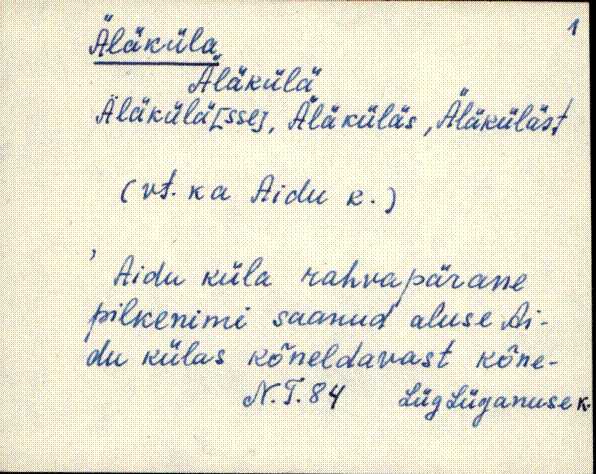 1
Äläküla
Äläkülä
Äläkülä[sse], Äläküläs, Äläküläst
(vt. ka Aidu k.)
Aidu küla rahvapärane
pilkenimi saanud aluse Ai-
du külas kõneldavast kõne-
N.T.84 Lüg Lüganuse k.